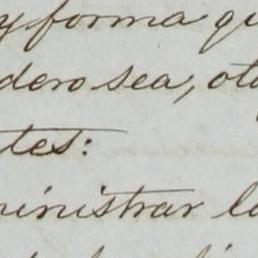 y forma qu
dero sea, oto
tes:
ministrar lo